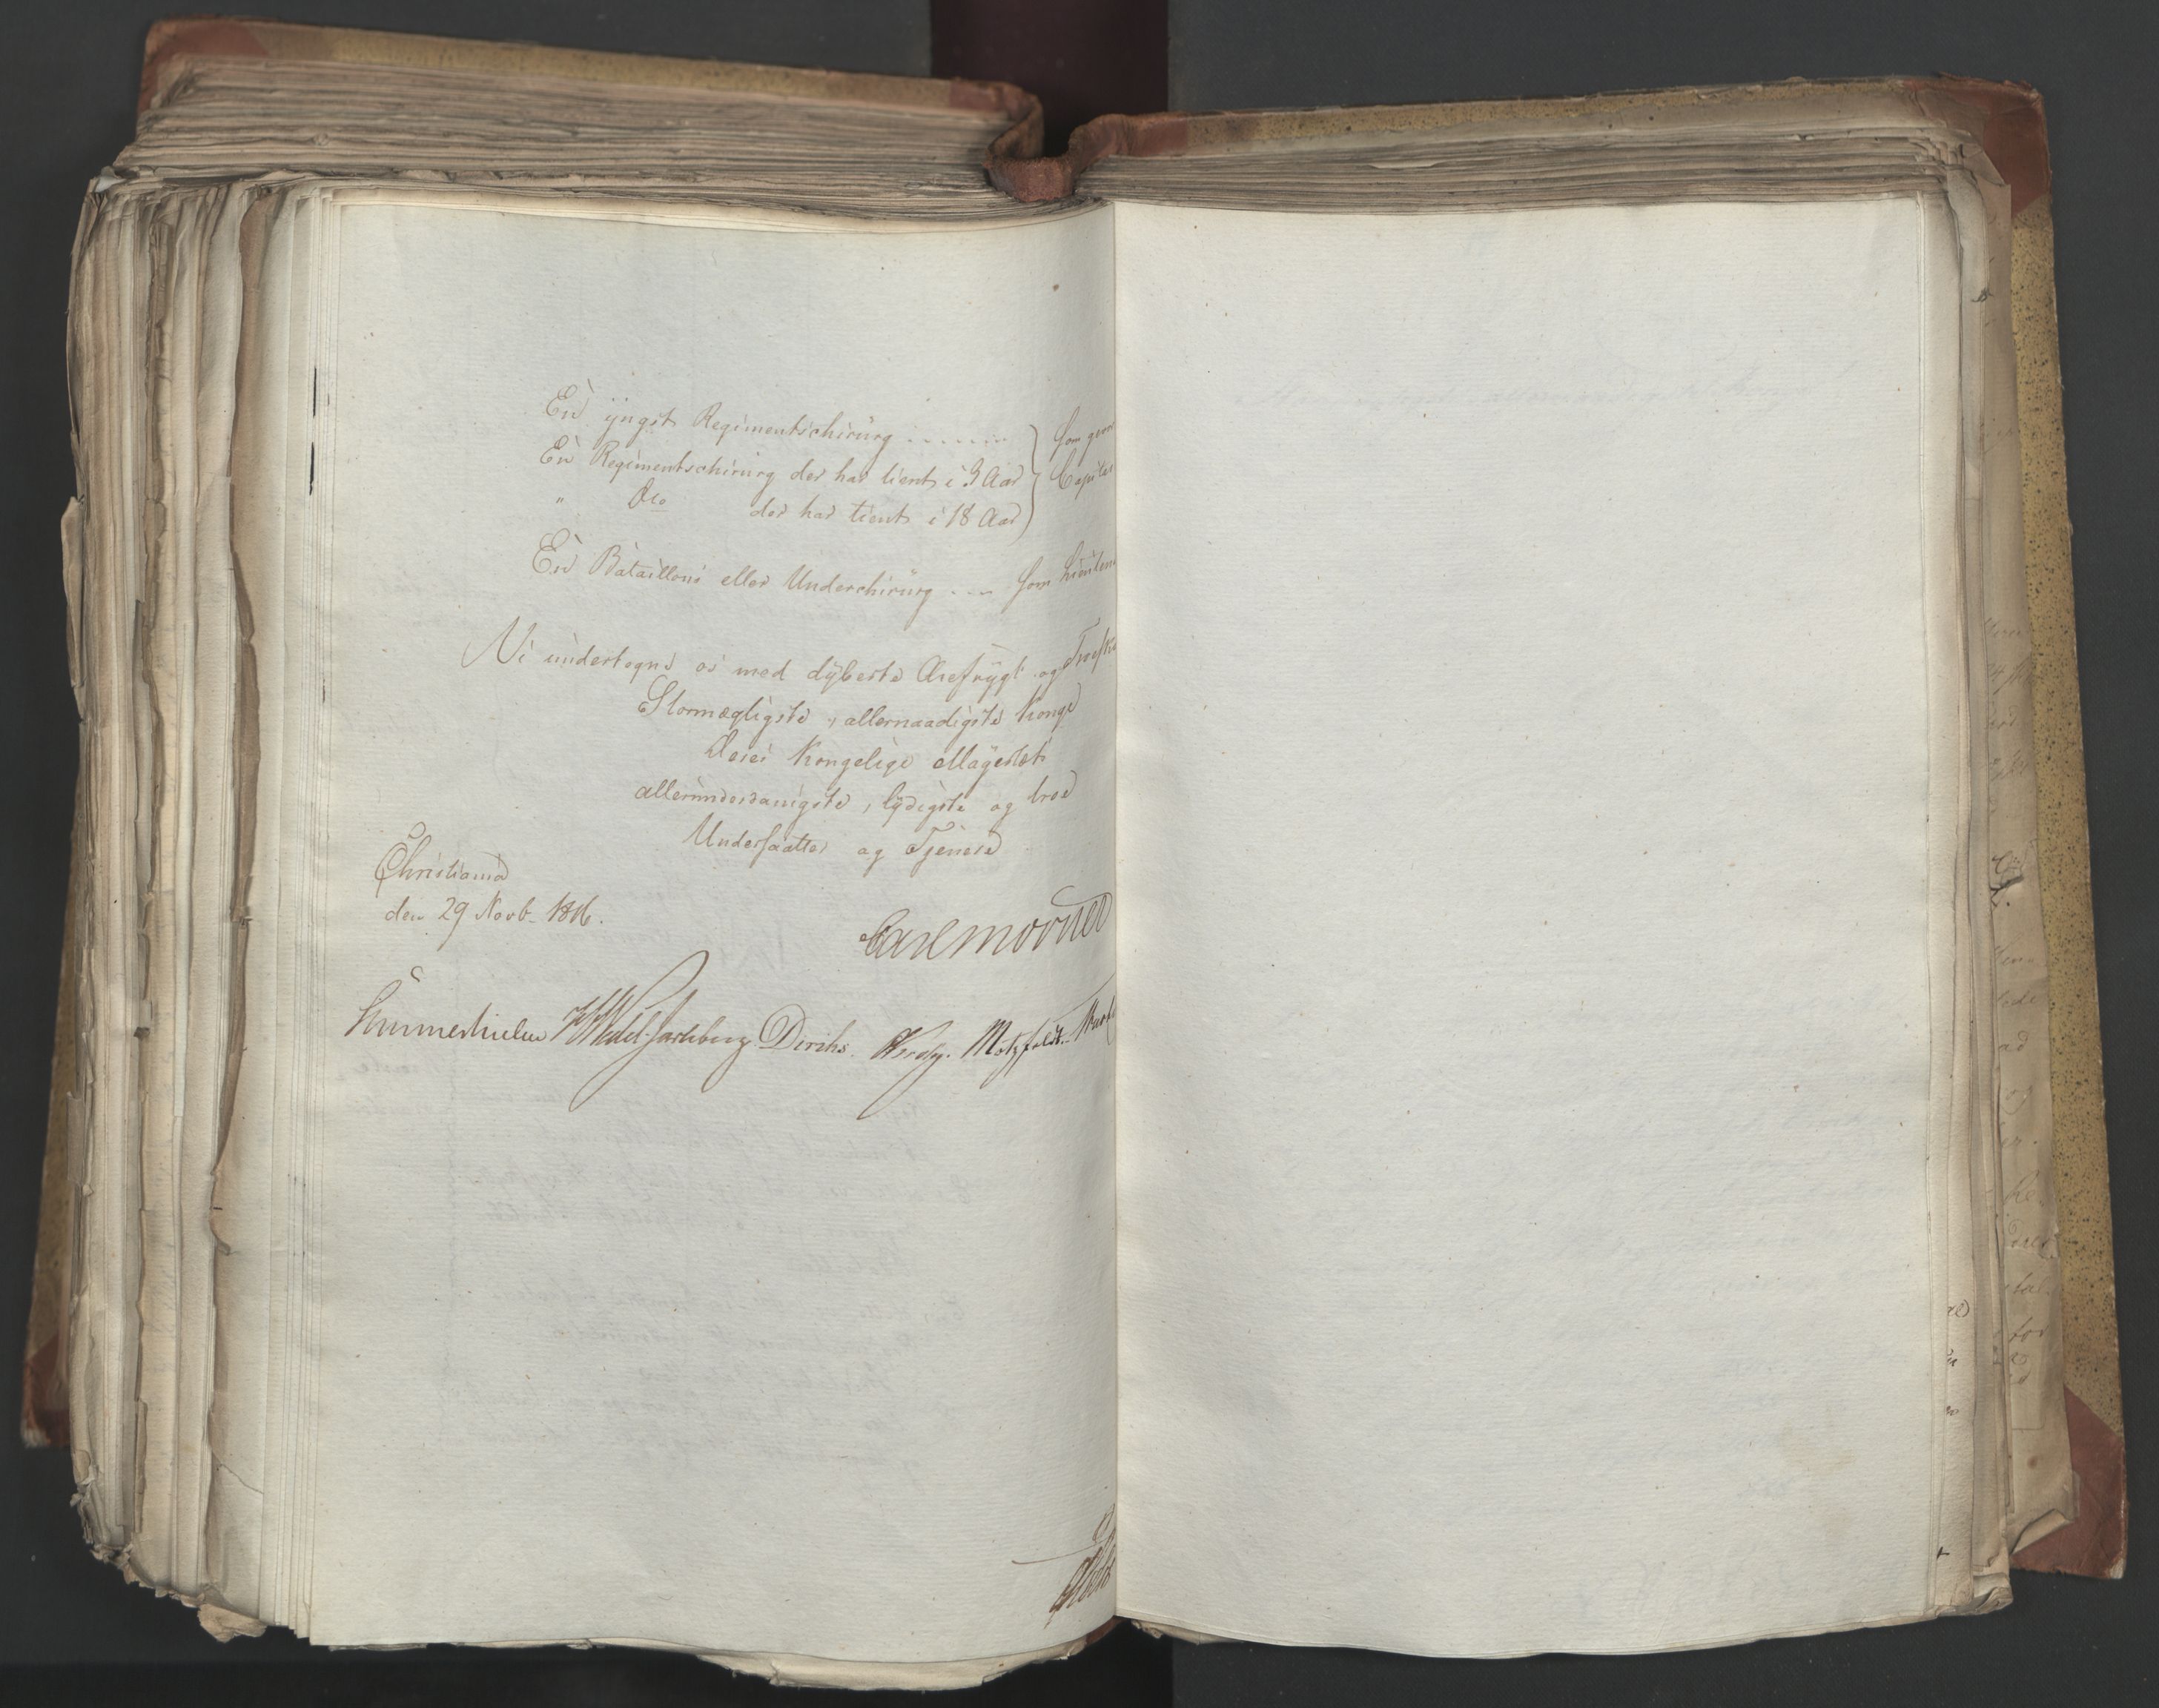 En yngst Regimentschirurg ....... } som
En Regimentschirurg der har tient i 9 Aar } Capitai
" Do der har tient i 18 Aar }
En Batallions eller Underchirurg .... som Lieuten
Vi undertegne os med dybeste Ærefrygt og Troesk
Stormægtigste, allernaadigste Konge
Deres Kongelige Mayestæts
allerunderdanigste, lydigste og troe
Undersaatter og Tjenere
Christiania
den 29 Novb. 1816.
Carl Mörner
Hummerhielm HWedel-Jarlsberg Diriks. Krog. Motzfeldt.